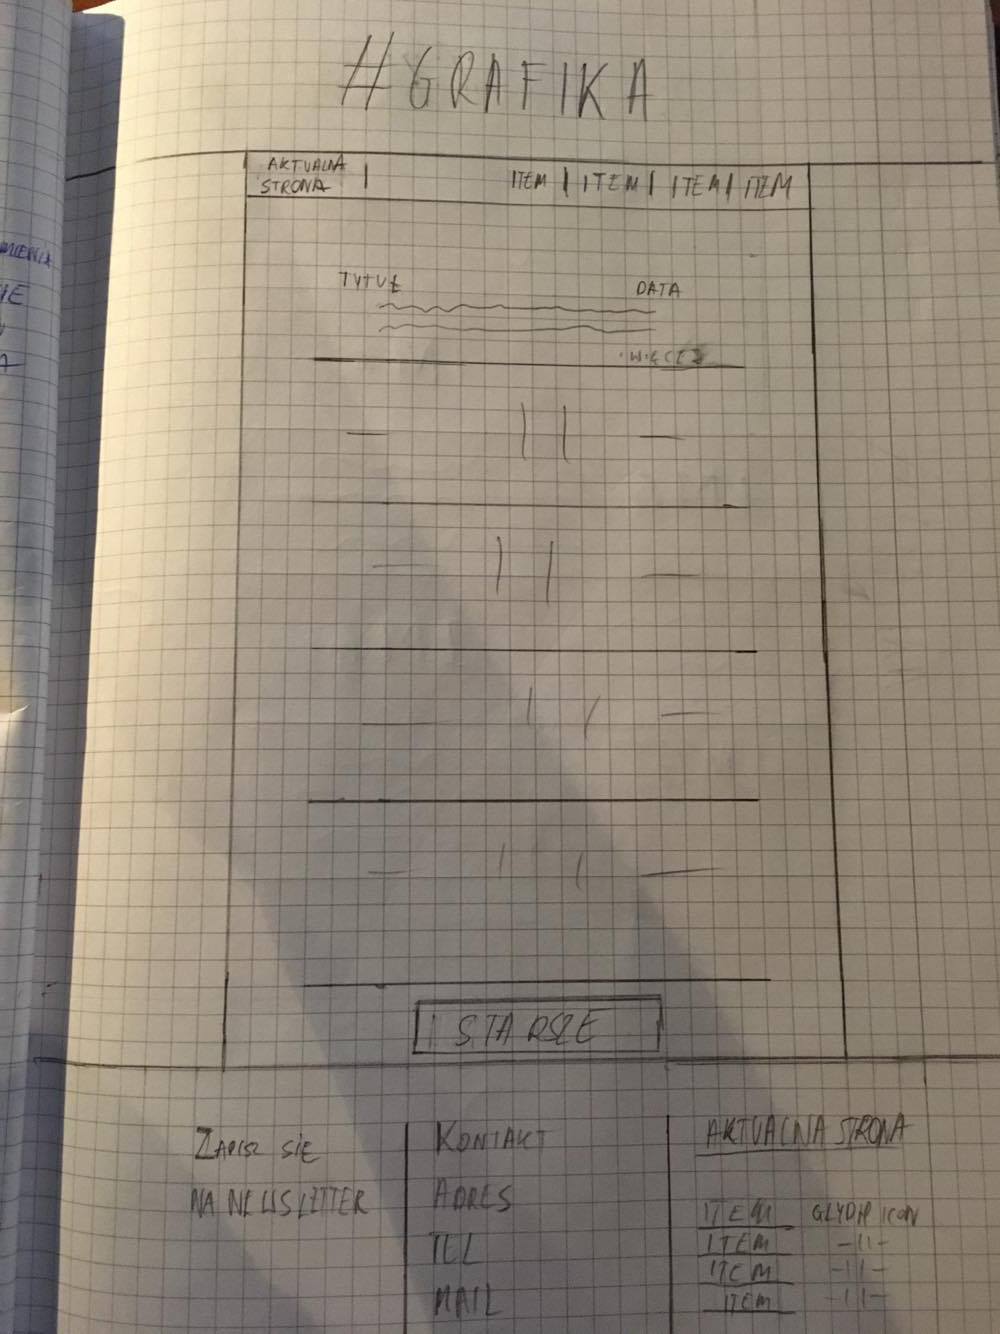 #GRAFIKA
AKTUALNA
STRONA | ITEM | ITEM | ITEM | ITEM
TYTUŁ DATA
WIĘCEJ
— | | —
— | | —
— | | —
— | | —
STARSZE
ZAPISZ SIĘ
NA NEWSLETTER
KONTAKT
ADRES
TEL
MAIL
AKTUALNA STRONA
ITEM GLYPH ICON
ITEM -||-
ITEM -||-
ITEM -||-